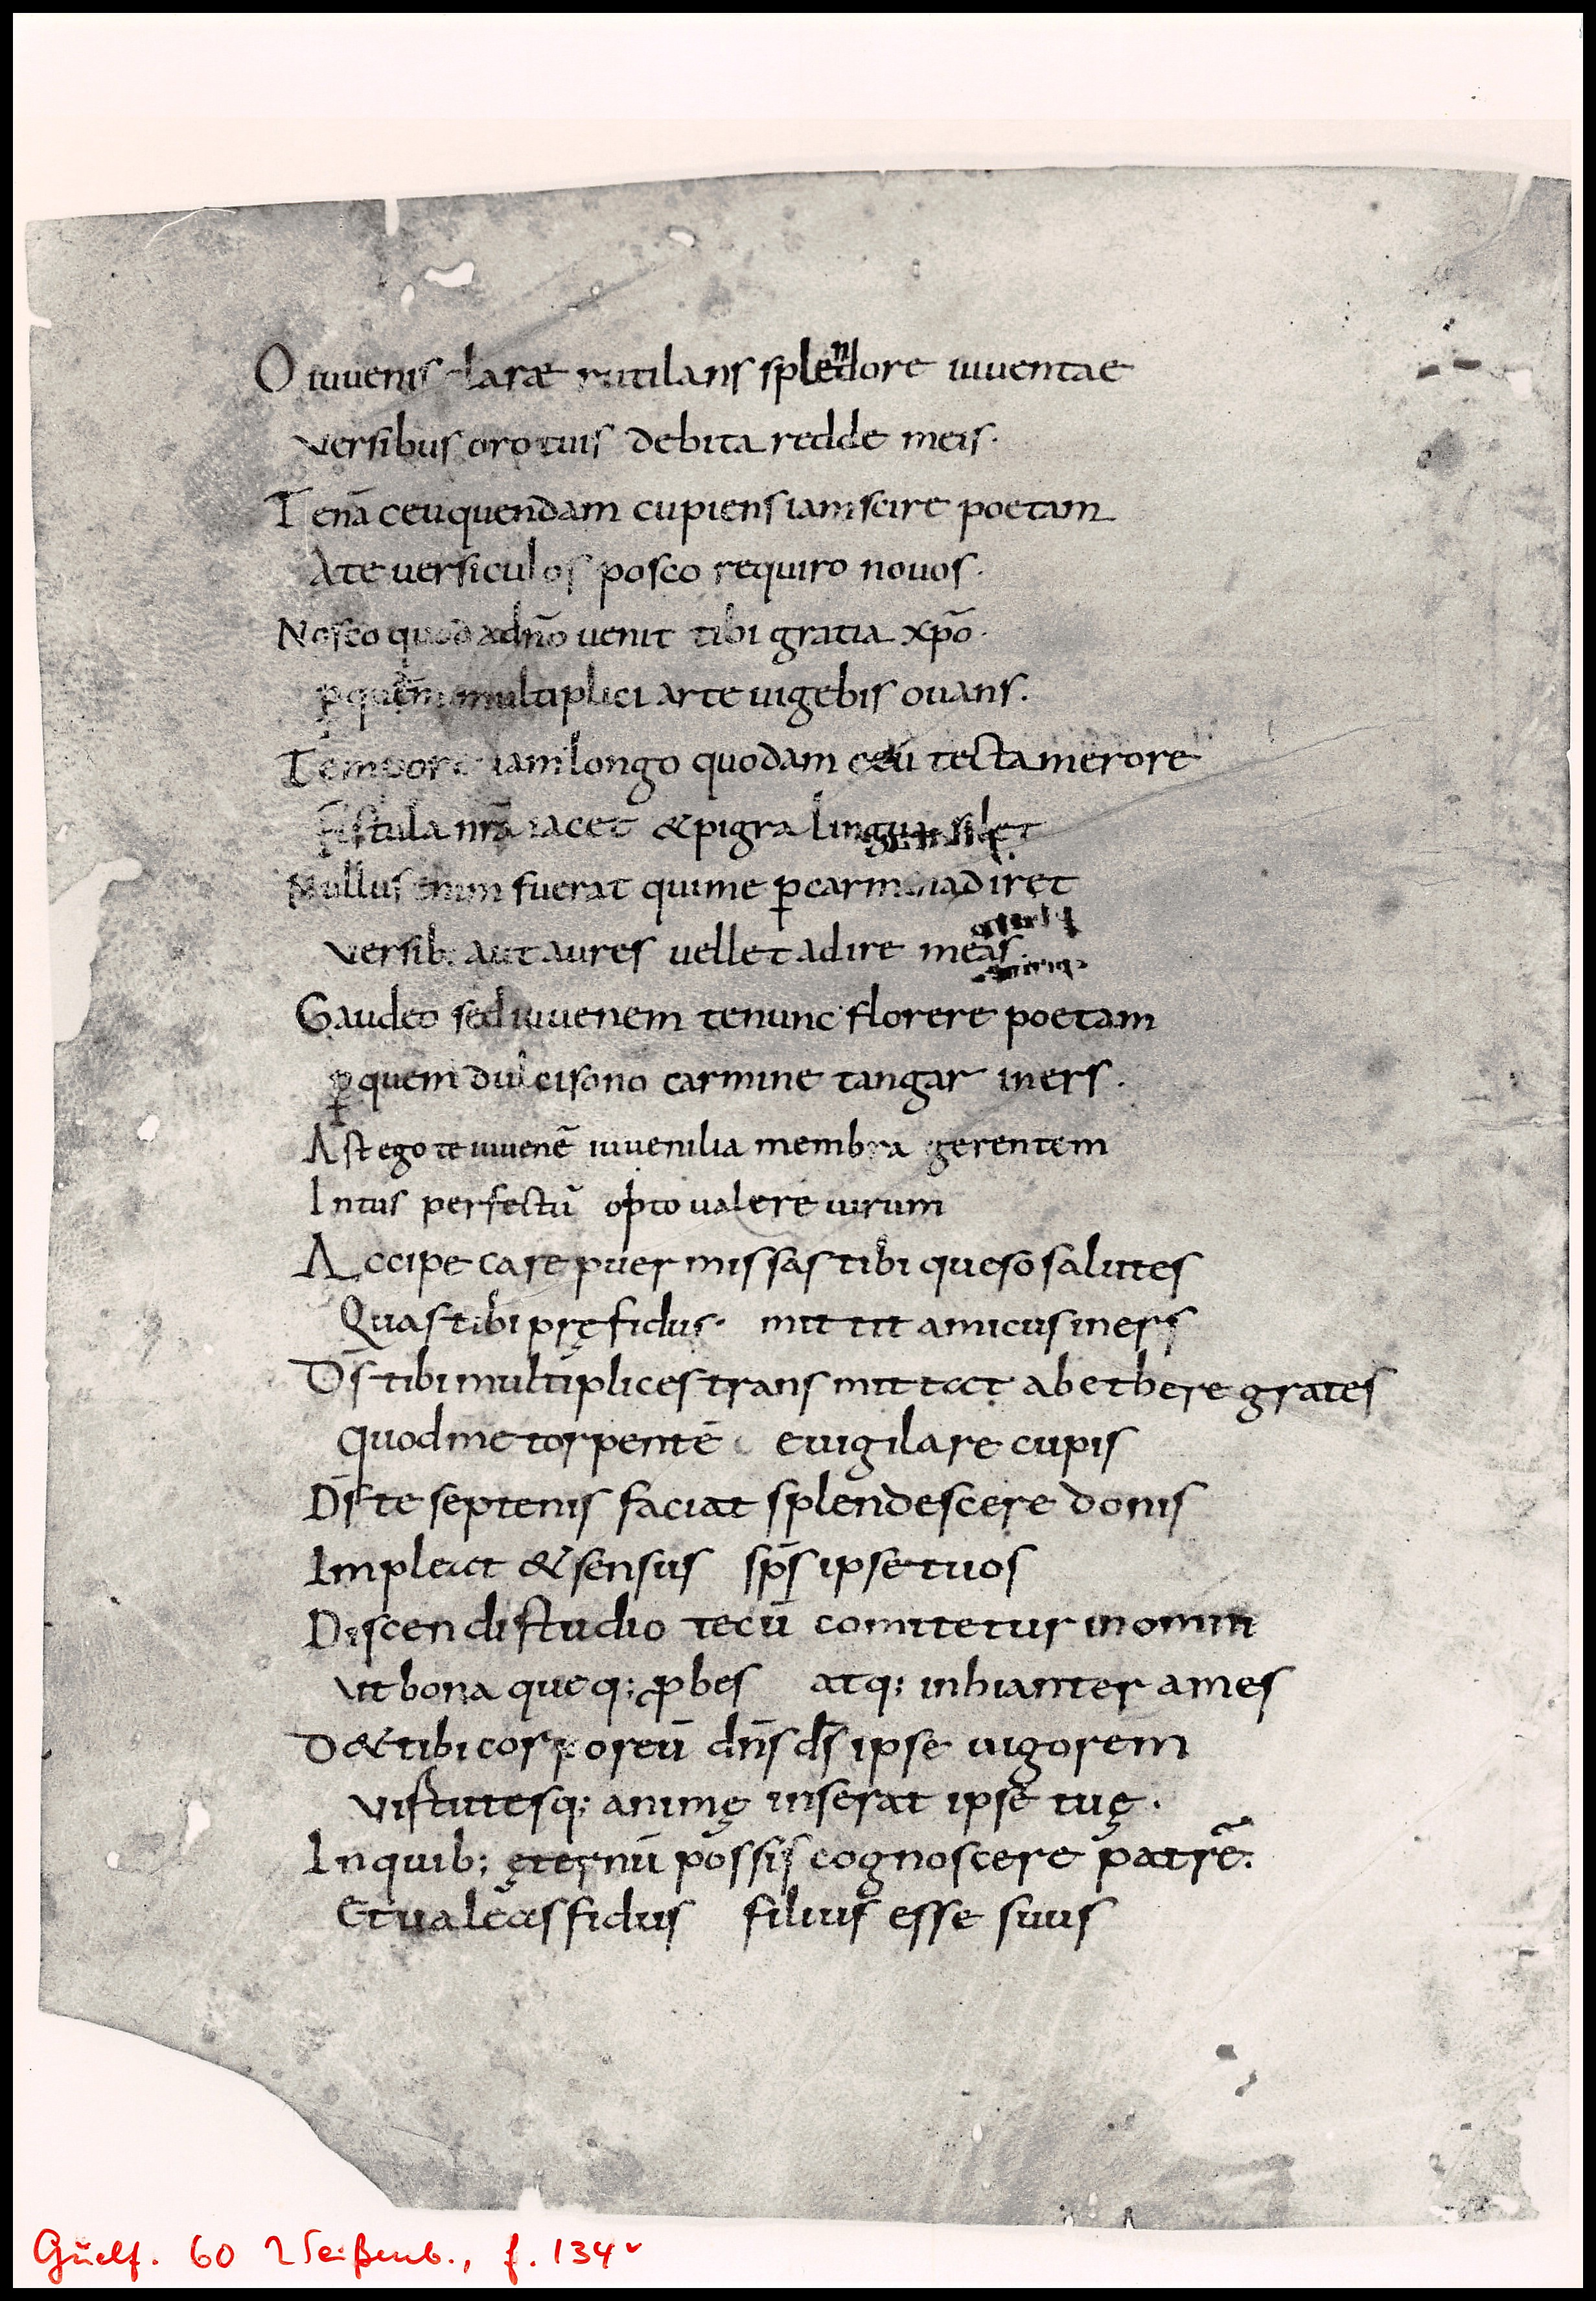 O iuuenis claræ rutilans splendore iuuentae
versibus oro tuis debita redde meis·
Te nā ceu quendam cupiens iam scire poetam
A te uersiculos posco requiro nouos·
Nosco quod a dn̄o uenit tibi gratia xp̄o·
ꝑ quem multiplici arte uigebis ouans.
Tempore iam longo quodam ceu tecta merore
Fistula nr̄a iacet & pigra lingua silet
Nullus enim fuerat qui me ꝑ carmina diret
versib; aut aures uellet adire meas.
Gaudeo sed iuuenem te nunc florere poetam
ꝑ quem dulcisono carmine tangar iners.
Ast ego te iuuenē iuuenilia membra gerentem
Intus perfectū opto ualere uirum
Accipe care puer missas tibi queso salutes
Quas tibi pręfidus· mittit amicus iners
Ds̄ tibi multiplices transmittat ab ethere grates
quod me torpentē euigilare cupis
Ds̄ te septenis faciat splendescere donis
Impleat & sensus sp̄s ipse tuos
Discendi studio tecū comitetur in omni
vt bona queq; ꝓbes atq; inhianter ames
D& tibi corporeū dn̄s ds̄ ipse uigorem
virtutesq; animę inserat ipse tuę.
In quib; ęternū possis cognoscere patrē.
Et ualeas fidus filius esse suus
Guelf. 60 Weißenb., f. 134ᵛ